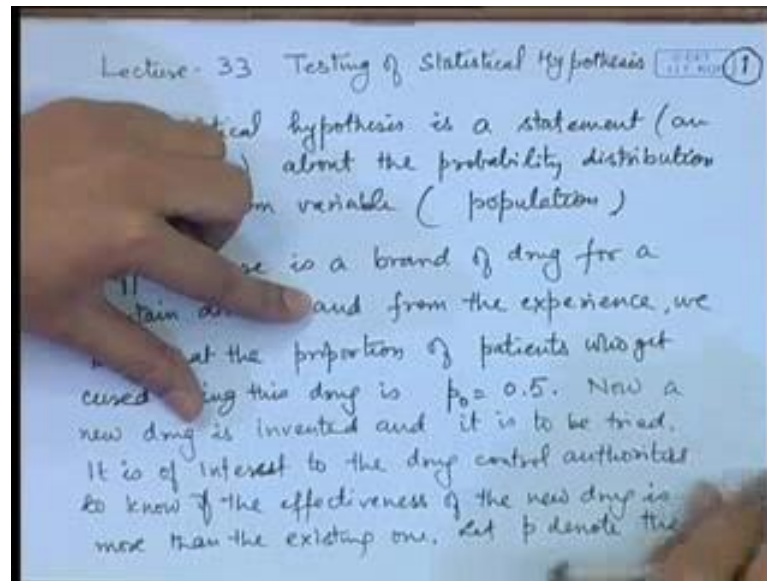 Lecture- 33 Testing of Statistical Hypothesis 1
tical hypothesis is a statement (an
) about the probability distribution
m variable ( population )
se is a brand of drug for a
tain and from the experience, we
at the proportion of patients who get
cured ing this drug is p₀ = 0.5. Now a
new drug is invented and it is to be tried.
It is of interest to the drug control authorities
to know if the effectiveness of the new drug is
more than the existing one. Let p denote the